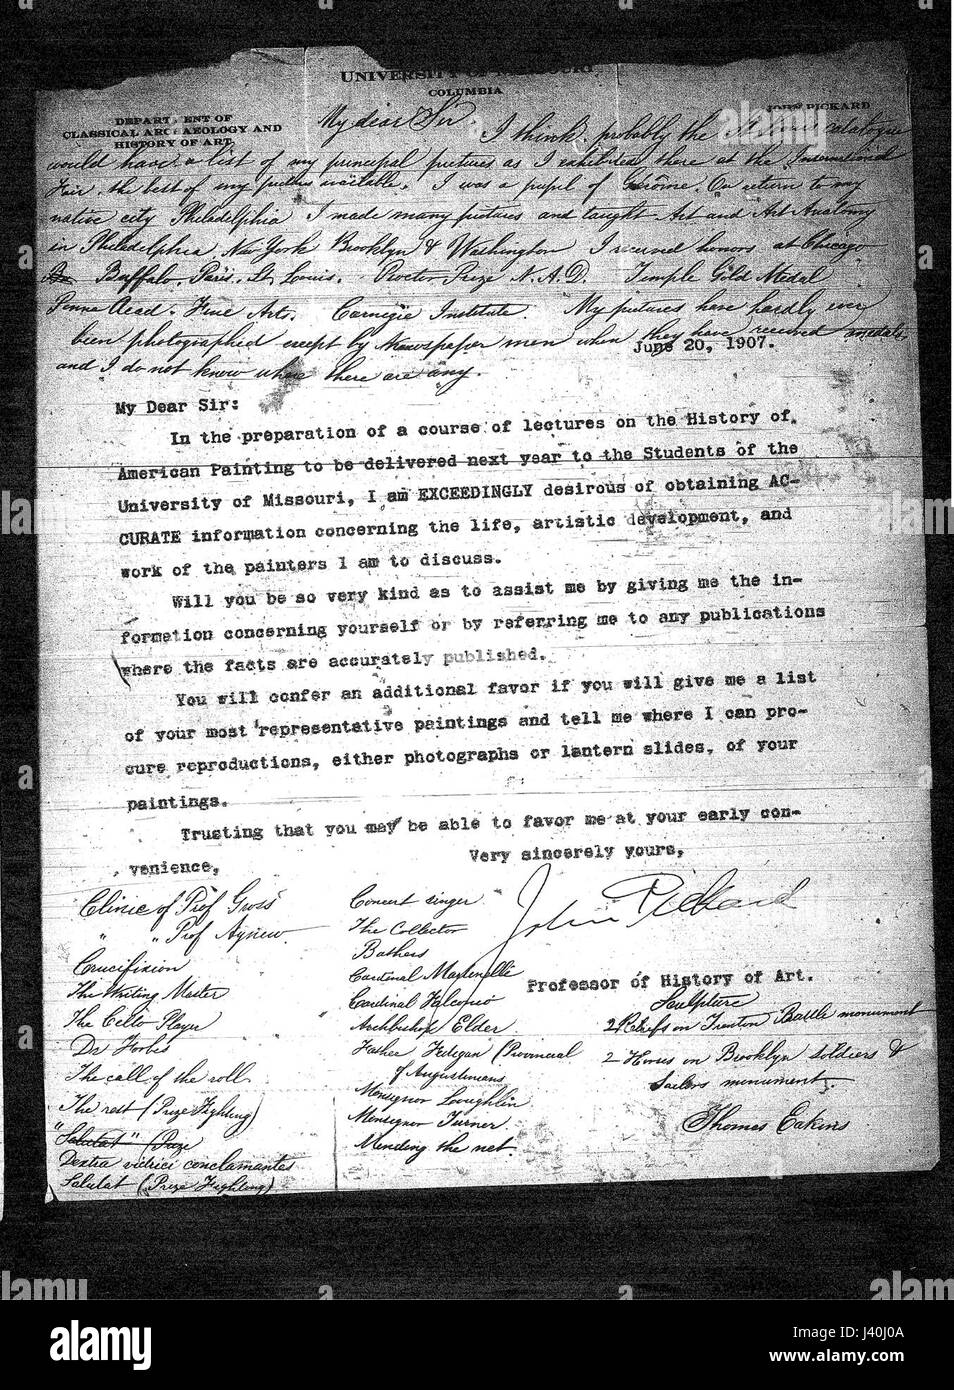 UNIVERSITY OF MISSOURI
COLUMBIA
DEPARTMENT OF
CLASSICAL ARCHAEOLOGY AND
HISTORY OF ART
JOHN PICKARD
My dear Sir
I think probably the St Louis catalogue
would have a list of my principal pictures as I exhibited there at the International
Fair, the best of my pictures. I was a pupil of Gérôme. On return to my
native city Philadelphia I made many pictures and taught Art and Art Anatomy
in Philadelphia, New York Brooklyn & Washington I received honors at Chicago
Buffalo, Paris, St. Louis. Proctor Prize N.A.D. Temple Gold Medal
Penna Acad. Fine Arts. Carnegie Institute. My pictures have hardly ever
been photographed except by newspaper men when they have received medals,
and I do not know where there are any.
June 20, 1907.
My Dear Sir:
In the preparation of a course of lectures on the History of
American Painting to be delivered next year to the Students of the
University of Missouri, I am EXCEEDINGLY desirous of obtaining AC-
CURATE information concerning the life, artistic development, and
work of the painters I am to discuss.
Will you be so very kind as to assist me by giving me the in-
formation concerning yourself or by referring me to any publications
where the facts are accurately published.
You will confer an additional favor if you will give me a list
of your most representative paintings and tell me where I can pro-
cure reproductions, either photographs or lantern slides, of your
paintings.
Trusting that you may be able to favor me at your early con-
venience,
Very sincerely yours,
John Pickard
Professor of History of Art.
Clinic of Prof Gross
" " Prof Agnew.
Crucifixion
The Writing Master
The Cello Player
Dr Forbes
The call of the roll
The rest (Prize Fighting)
"Salutat" (Prize
Dextra victrici conclamantes
Salutat (Prize Fighting)
Concert singer
The Collector
Bathers
Cardinal Martinelli
Cardinal Falconio
Archbishop Elder.
Father Fedigan (Provincial
of Augustinians
Monsignor Loughlin
Monsignor Turner.
Mending the net.
Sculpture
2 Reliefs on Trenton Battle monument
2 Horses on Brooklyn soldiers &
sailors monument.
Thomas Eakins
alamy
Image ID: J40J0A
www.alamy.com